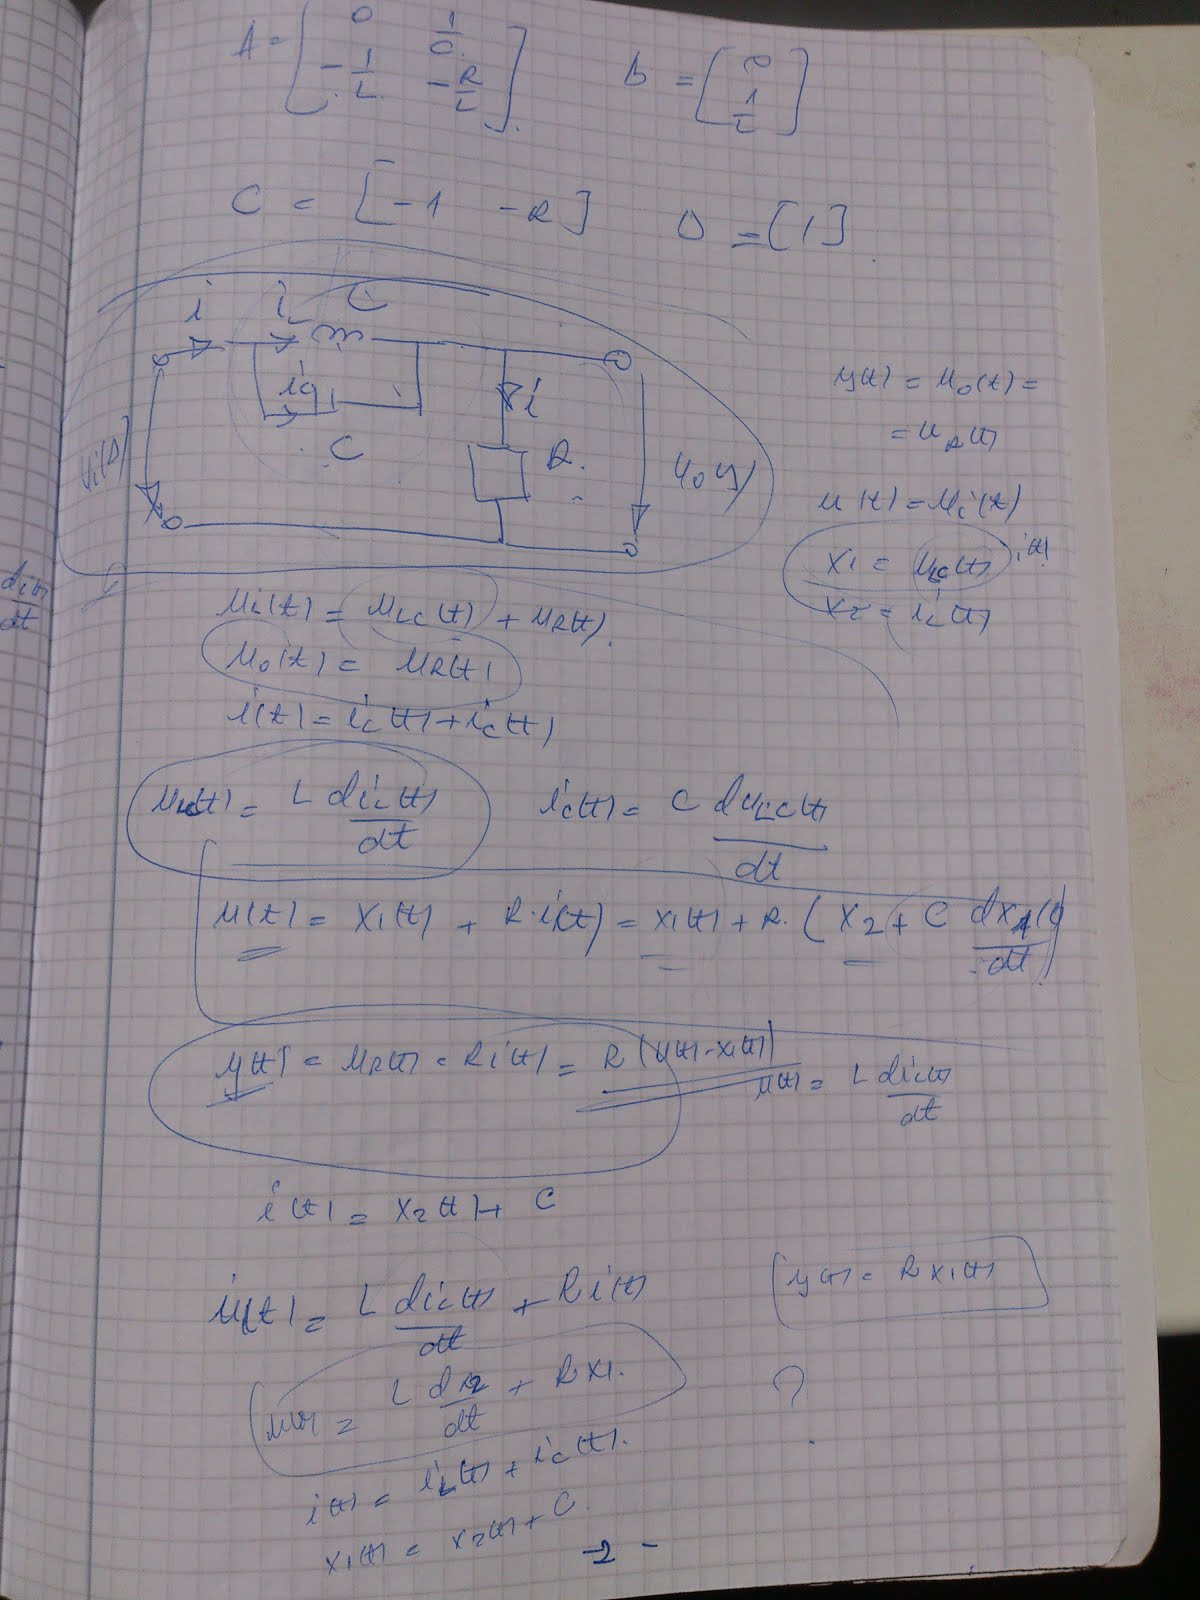 A = [ 0 1/C ; -1/L -R/L ] B = [ 0 ; 1/L ]
C = [ -1 -R ] D = [1]
i i_L L
i_C
C
i
R
u_i(t)
u_o(t)
y(t) = u_o(t) =
= u_R(t)
u(t) = u_i(t)
x1 = u_LC(t) i(t)
x2 = i_L(t)
di(t)/dt
u_i(t) = u_LC(t) + u_R(t).
u_o(t) = u_R(t)
i(t) = i_L(t) + i_C(t)
u_LC(t) = L di_L(t)/dt i_C(t) = C du_LC(t)/dt
u(t) = x1(t) + R·i(t) = x1(t) + R·(x2 + C dx1(t)/dt)
y(t) = u_R(t) = Ri(t) = R(u(t)-x1(t))
u(t) = L di_L(t)/dt
i(t) = x2(t) + C
u(t) = L di_L(t)/dt + Ri(t)
y(t) = Rx1(t)
u(t) = L dx2/dt + Rx1. ?
i(t) = i_L(t) + i_C(t).
x1(t) = x2(t) + C.
-2-